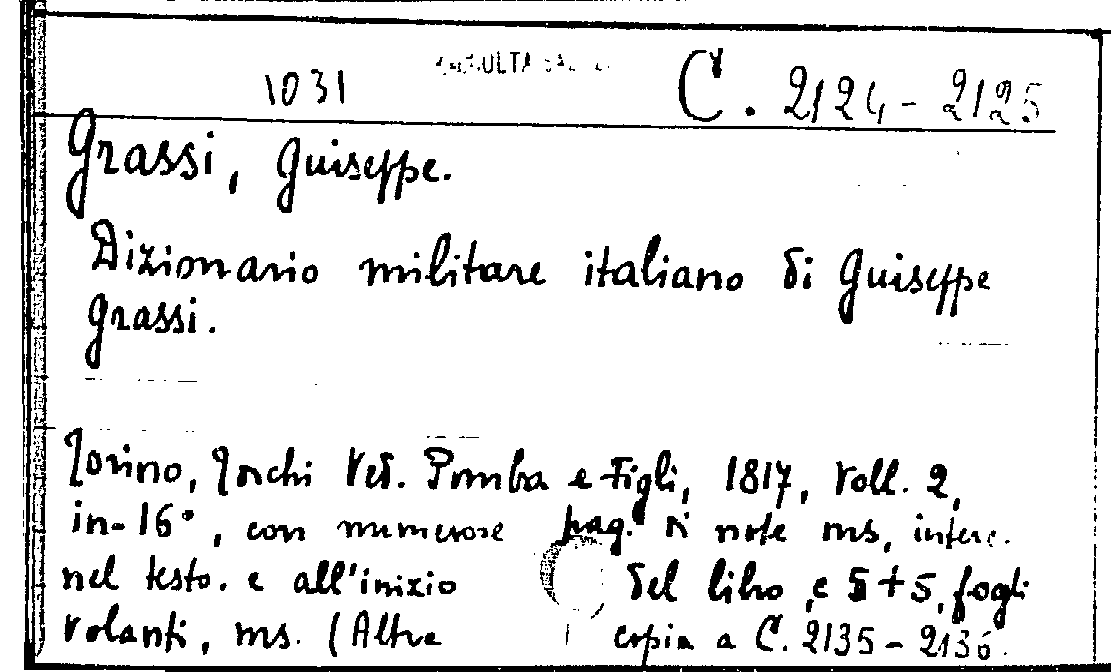 1031 C. 2124 - 2125
Grassi, Guiseppe.
Dizionario militare italiano di Guiseppe
Grassi.
Torino, Torchi Ved. Pomba e Figli, 1817, Voll. 2,
in-16°, con numerose pag. di note ms, interc.
nel testo. e all'inizio del libro, e 5+5, fogli
volanti, ms. (Altra copia a C. 2135 - 2136.